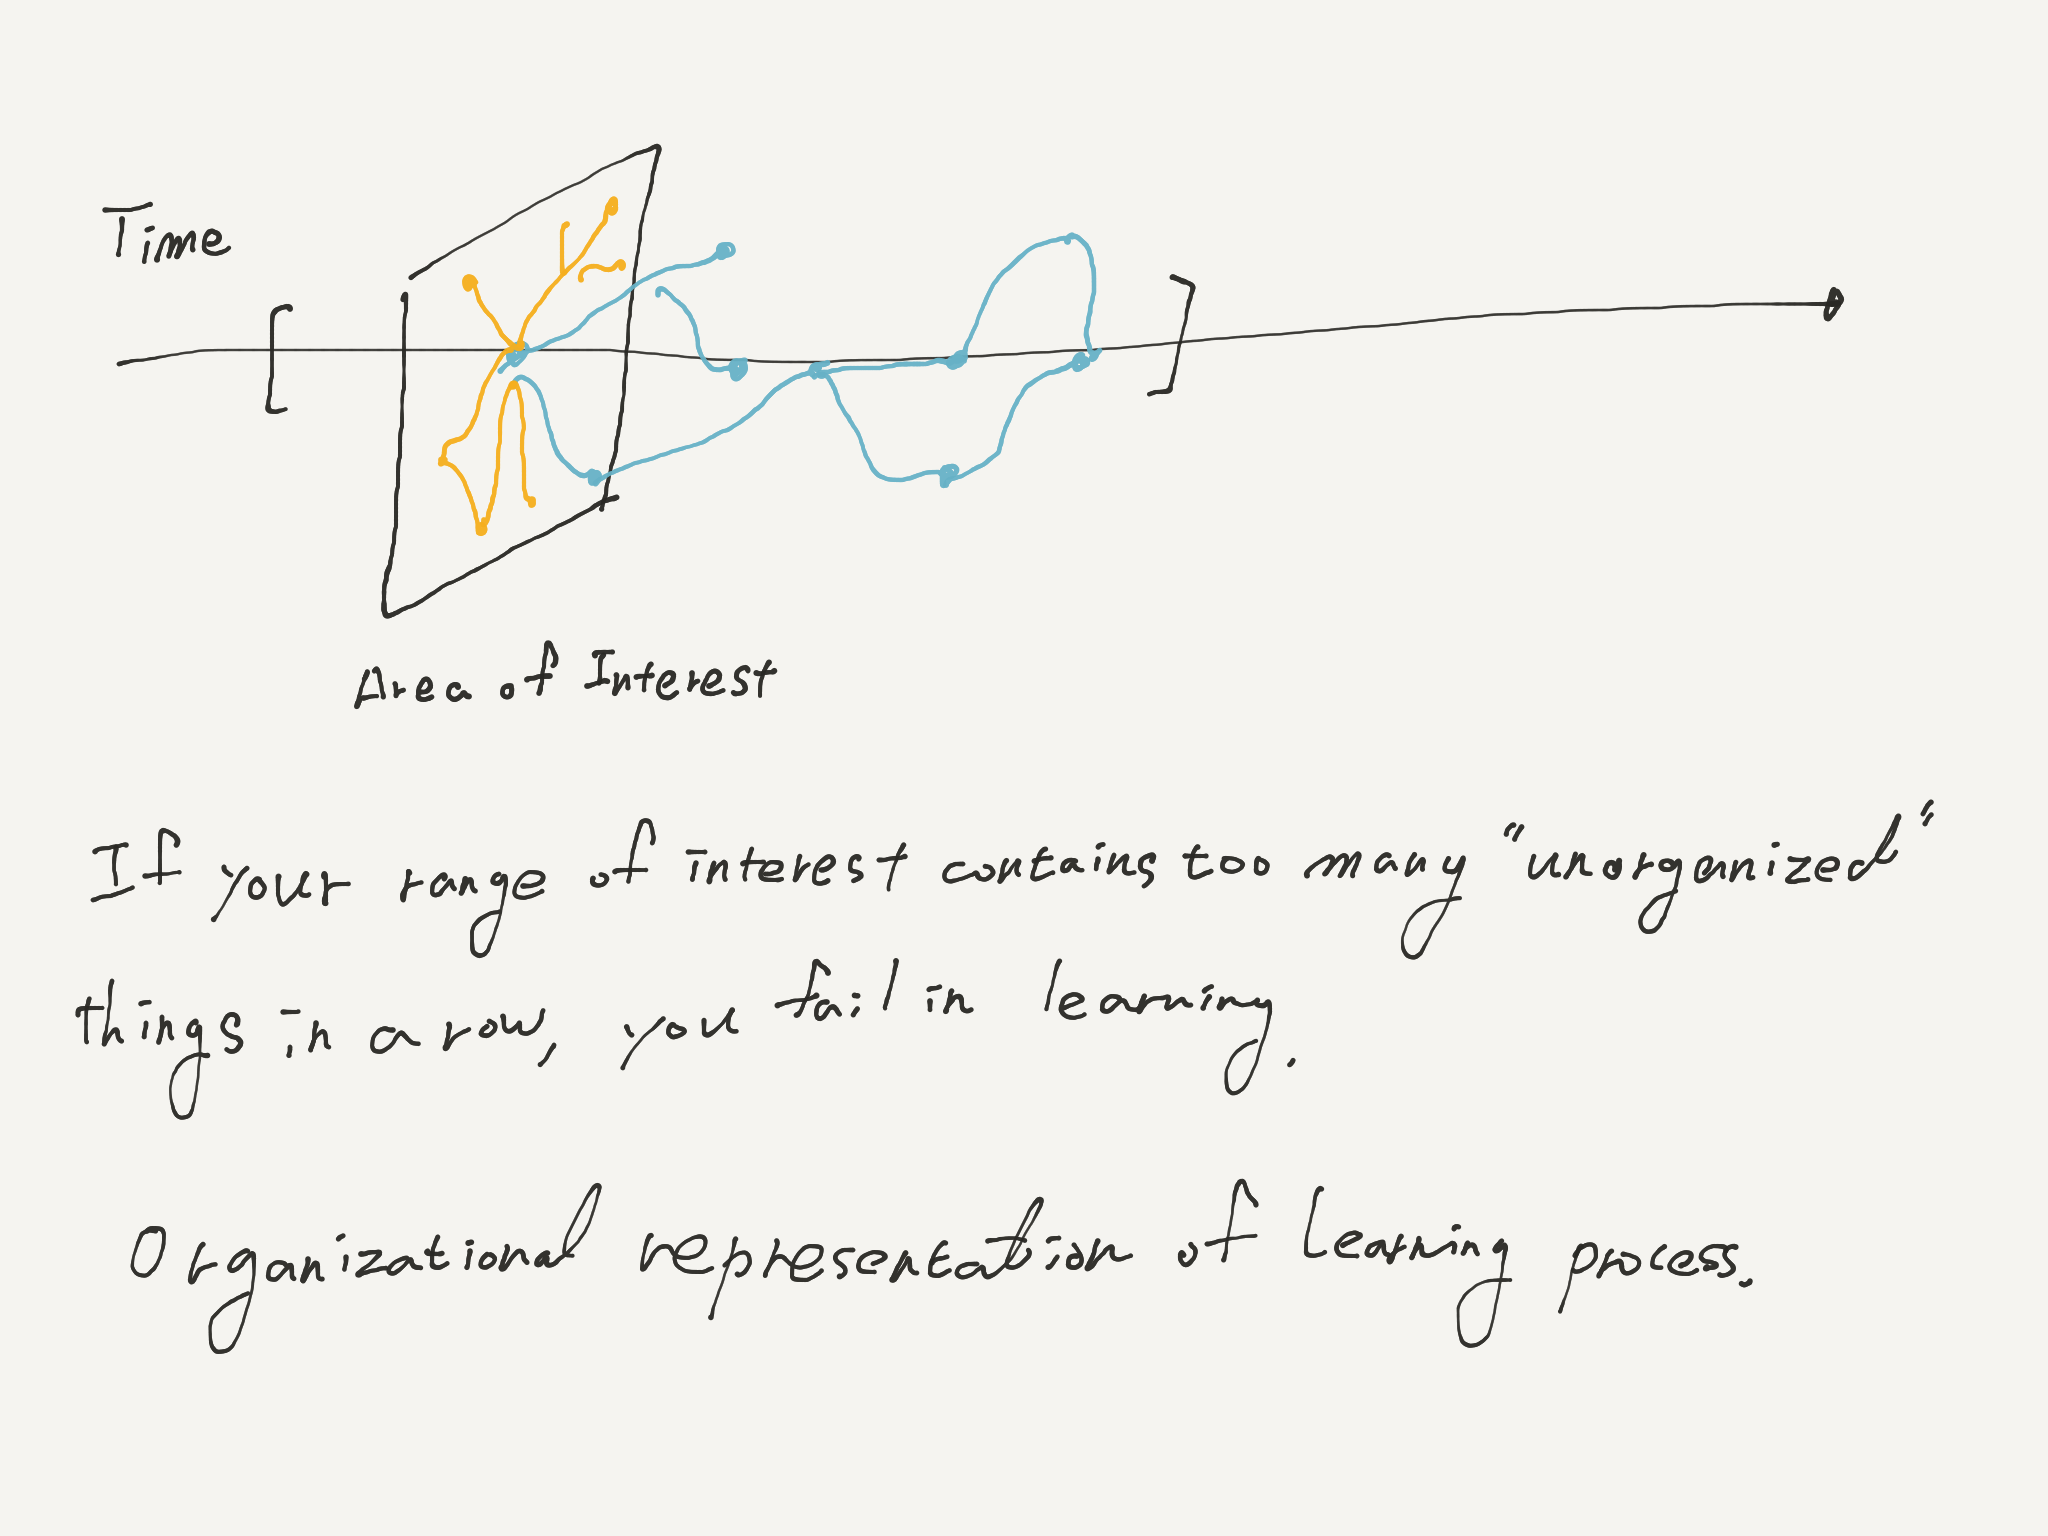 Time
Area of Interest
If your range of interest contains too many "unorganized"
things in a row, you fail in learning.
Organizational representation of Learning process.